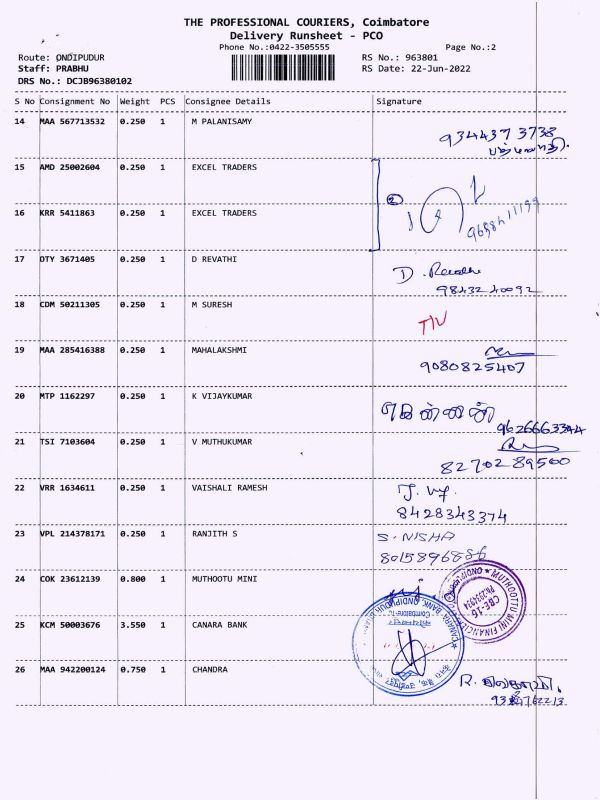 THE PROFESSIONAL COURIERS, Coimbatore
Delivery Runsheet - PCO
Phone No.:0422-3505555 Page No.:2
Route: ONDIPUDUR RS No.: 963801
Staff: PRABHU RS Date: 22-Jun-2022
DRS No.: DCJB96380102
S No Consignment No Weight PCS Consignee Details Signature
14 MAA 567713532 0.250 1 M PALANISAMY
9344373738
15 AMD 25002604 0.250 1 EXCEL TRADERS
2
16 KRR 5411863 0.250 1 EXCEL TRADERS
17 OTY 3671405 0.250 1 D REVATHI
D. Revathi
9843240092
18 CDM 50211305 0.250 1 M SURESH
19 MAA 285416388 0.250 1 MAHALAKSHMI
9080825407
20 MTP 1162297 0.250 1 K VIJAYKUMAR
21 TSI 7103604 0.250 1 V MUTHUKUMAR
8270289500
22 VRR 1634611 0.250 1 VAISHALI RAMESH
8428343374
23 VPL 214378171 0.250 1 RANJITH S
S. NISHA
8015896886
24 COK 23612139 0.800 1 MUTHOOTU MINI
25 KCM 50003676 3.550 1 CANARA BANK
26 MAA 942200124 0.750 1 CHANDRA